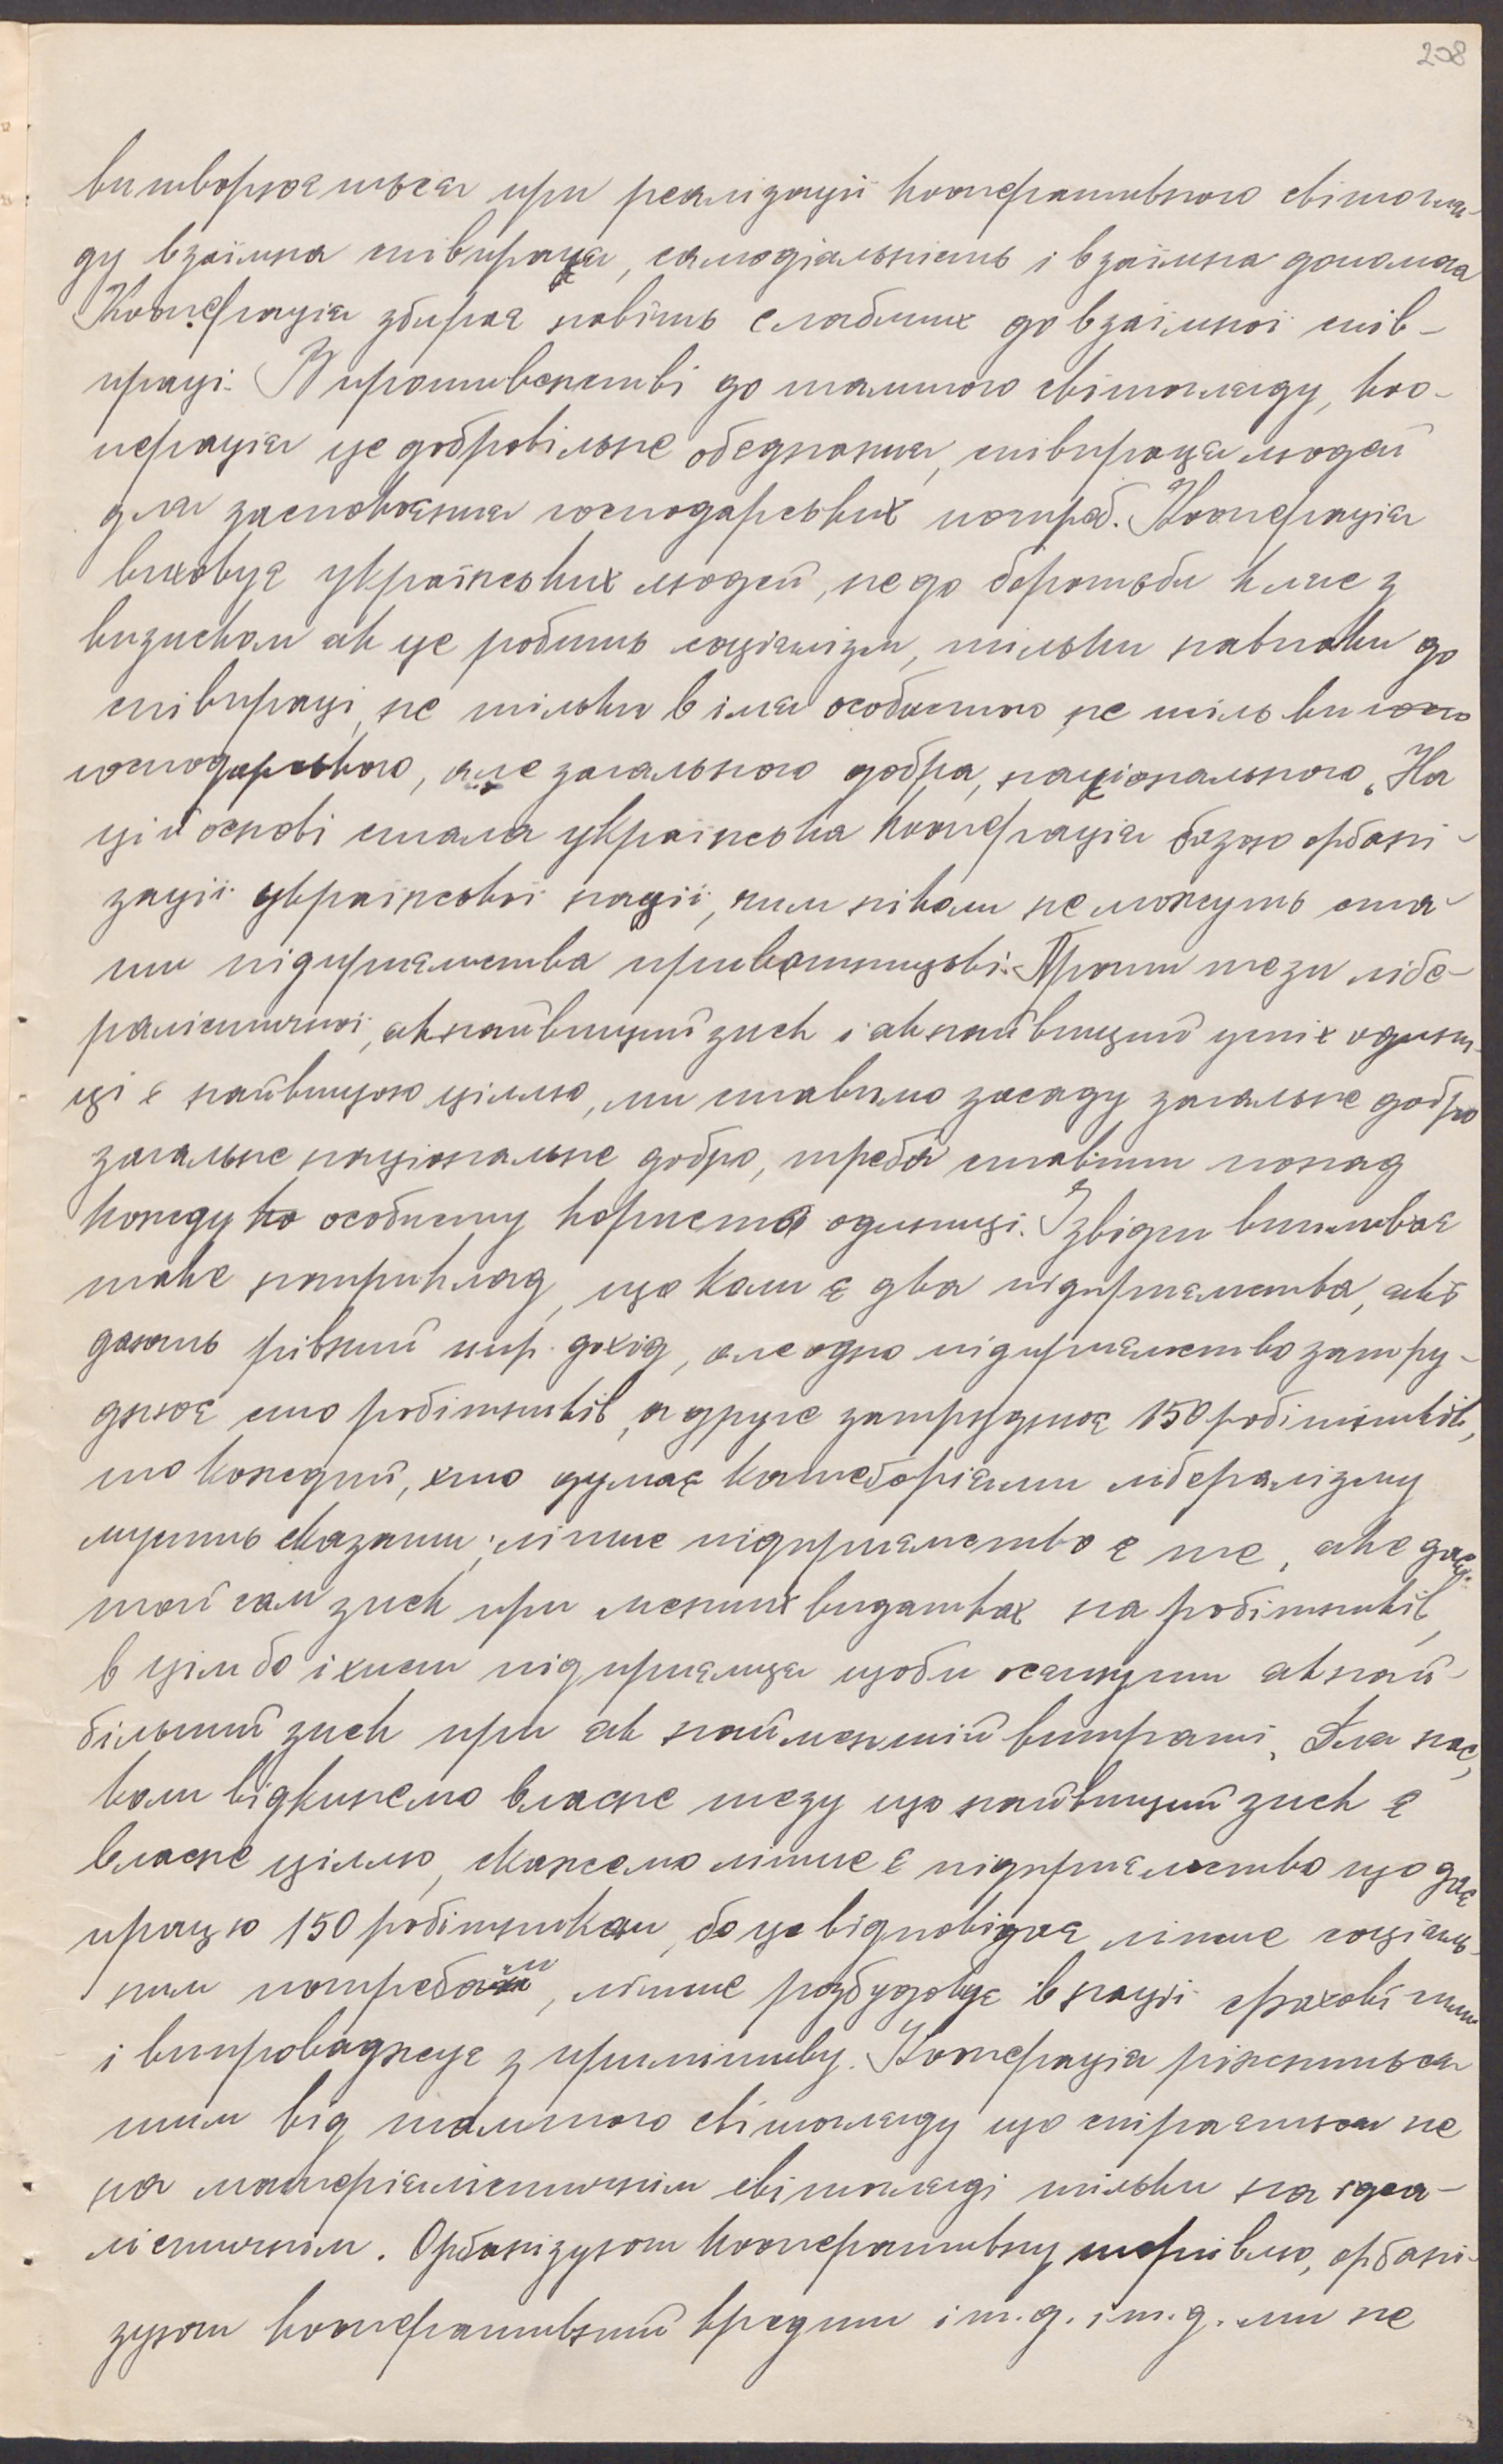 208
витворюється при реалізації кооперативного світогля-
ду взаїмна співпраця, самодіяльність і взаїмна допомога
Кооперація збирає навіть слабших до взаїмної спів-
праці. В противенстві до тамтого світогляду, коо-
перація це добровільне обєднання, співпраця людей
для заспокоєння господарських потреб. Кооперація
виховує українських людей, не до боротьби кляс з
визиском як це робить соціялізм, тільки навпаки до
співпраці, не тільки в імя особистого не тільки
господарського, але загального добра, національного. На
цій основі стала українська кооперація базою орґані-
зації української нації, чим ніколи не можуть ста-
ти підприємства приватницькі. Проти тези лібе-
ралістичної, якнайвищий зиск і якнайвищий успіх одини-
ці є найвищою ціллю, ми ставимо засаду загальне добро
загальне національне добро, треба ставити понад
кожду особисту користь одиниці. Звідси випливає
таке наприклад, що коли є два підприємства, які
дають рівний нпр. дохід, але одно підприємство затру-
днює сто робітників, а друге затруднює 150 робітників,
то кождий, хто думає катеґоріями лібералізму
мусить сказати: ліпше підприємство є те, яке дає
той сам зиск при менших видатках на робітників,
в цім бо і хист підприємця щоби осягнути якнай-
більший зиск при як найменшій витраті. Для нас,
коли відкинемо власне тезу що найвищий зиск є
власне ціллю, скажемо ліпше є підприємство що дає
працю 150 робітникам, бо це відповідає ліпше соціяль-
ним потребам, ліпше розбудовує в нації фахові сили
і випроваджує з примітиву. Кооперація ріжниться
тим від тамтого світогляду що спірається не
на матеріялістичнім світогляді тільки на ідеа-
лістичнім. Орґанізуючи кооперативну торгівлю, орґані-
зуючи кооперативний кредит і т.д. і т.д. ми не